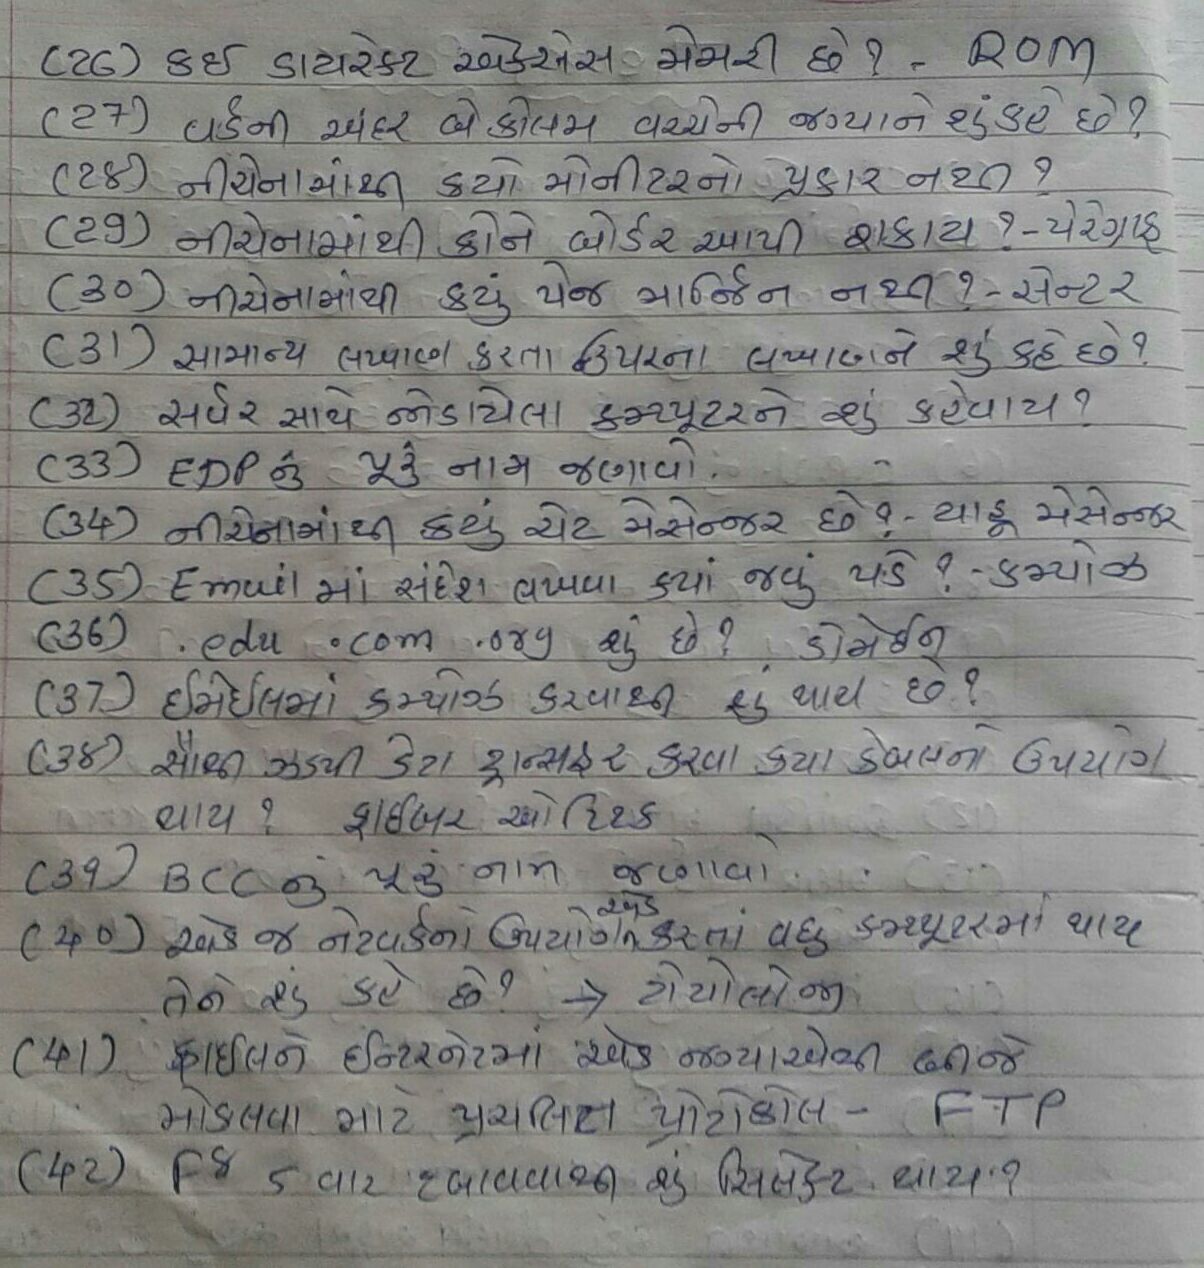 (26) કઈ ડાયરેક્ટ એકસેસ મેમરી છે? - ROM
(27) વર્ડની અંદર બે કોલમ વચ્ચેની જગ્યાને શું કહે છે?
(28) નીચેનામાંથી કયો મોનીટરનો પ્રકાર નથી?
(29) નીચેનામાંથી કોને બોર્ડર આપી શકાય? - પેરેગ્રાફ
(30) નીચેનામાંથી કયું પેજ માર્જિન નથી? - સેન્ટર
(31) સામાન્ય લખાણ કરતા ઉપરના લખાણને શું કહે છે?
(32) સર્વર સાથે જોડાયેલા કમ્પ્યૂટરને શું કહેવાય?
(33) EDP નું પૂરું નામ જણાવો.
(34) નીચેનામાંથી કયું ચેટ મેસેન્જર છે? - યાહૂ મેસેન્જર
(35) Email માં સંદેશ લખવા ક્યાં જવું પડે? - કમ્પોઝ
(36) .edu .com .org શું છે? ડોમેઈન
(37) ઈમેઈલમાં કમ્પોઝ કરવાથી શું થાય છે?
(38) સૌથી ઝડપી ડેટા ટ્રાન્સફર કરવા કયા કેબલનો ઉપયોગ
થાય? ફાઈબર ઓપ્ટિક
(39) BCC નું પૂરું નામ જણાવો.
(40) એક જ નેટવર્કનો ઉપયોગ એક કરતાં વધુ કમ્પ્યૂટરમાં થાય
તેને શું કહે છે? → ટોપોલોજી
(41) ફાઈલને ઈન્ટરનેટમાં એક જગ્યાએથી બીજે
મોકલવા માટે પ્રચલિત પ્રોટોકોલ - FTP
(42) F8 5 વાર દબાવવાથી શું સિલેક્ટ થાય?